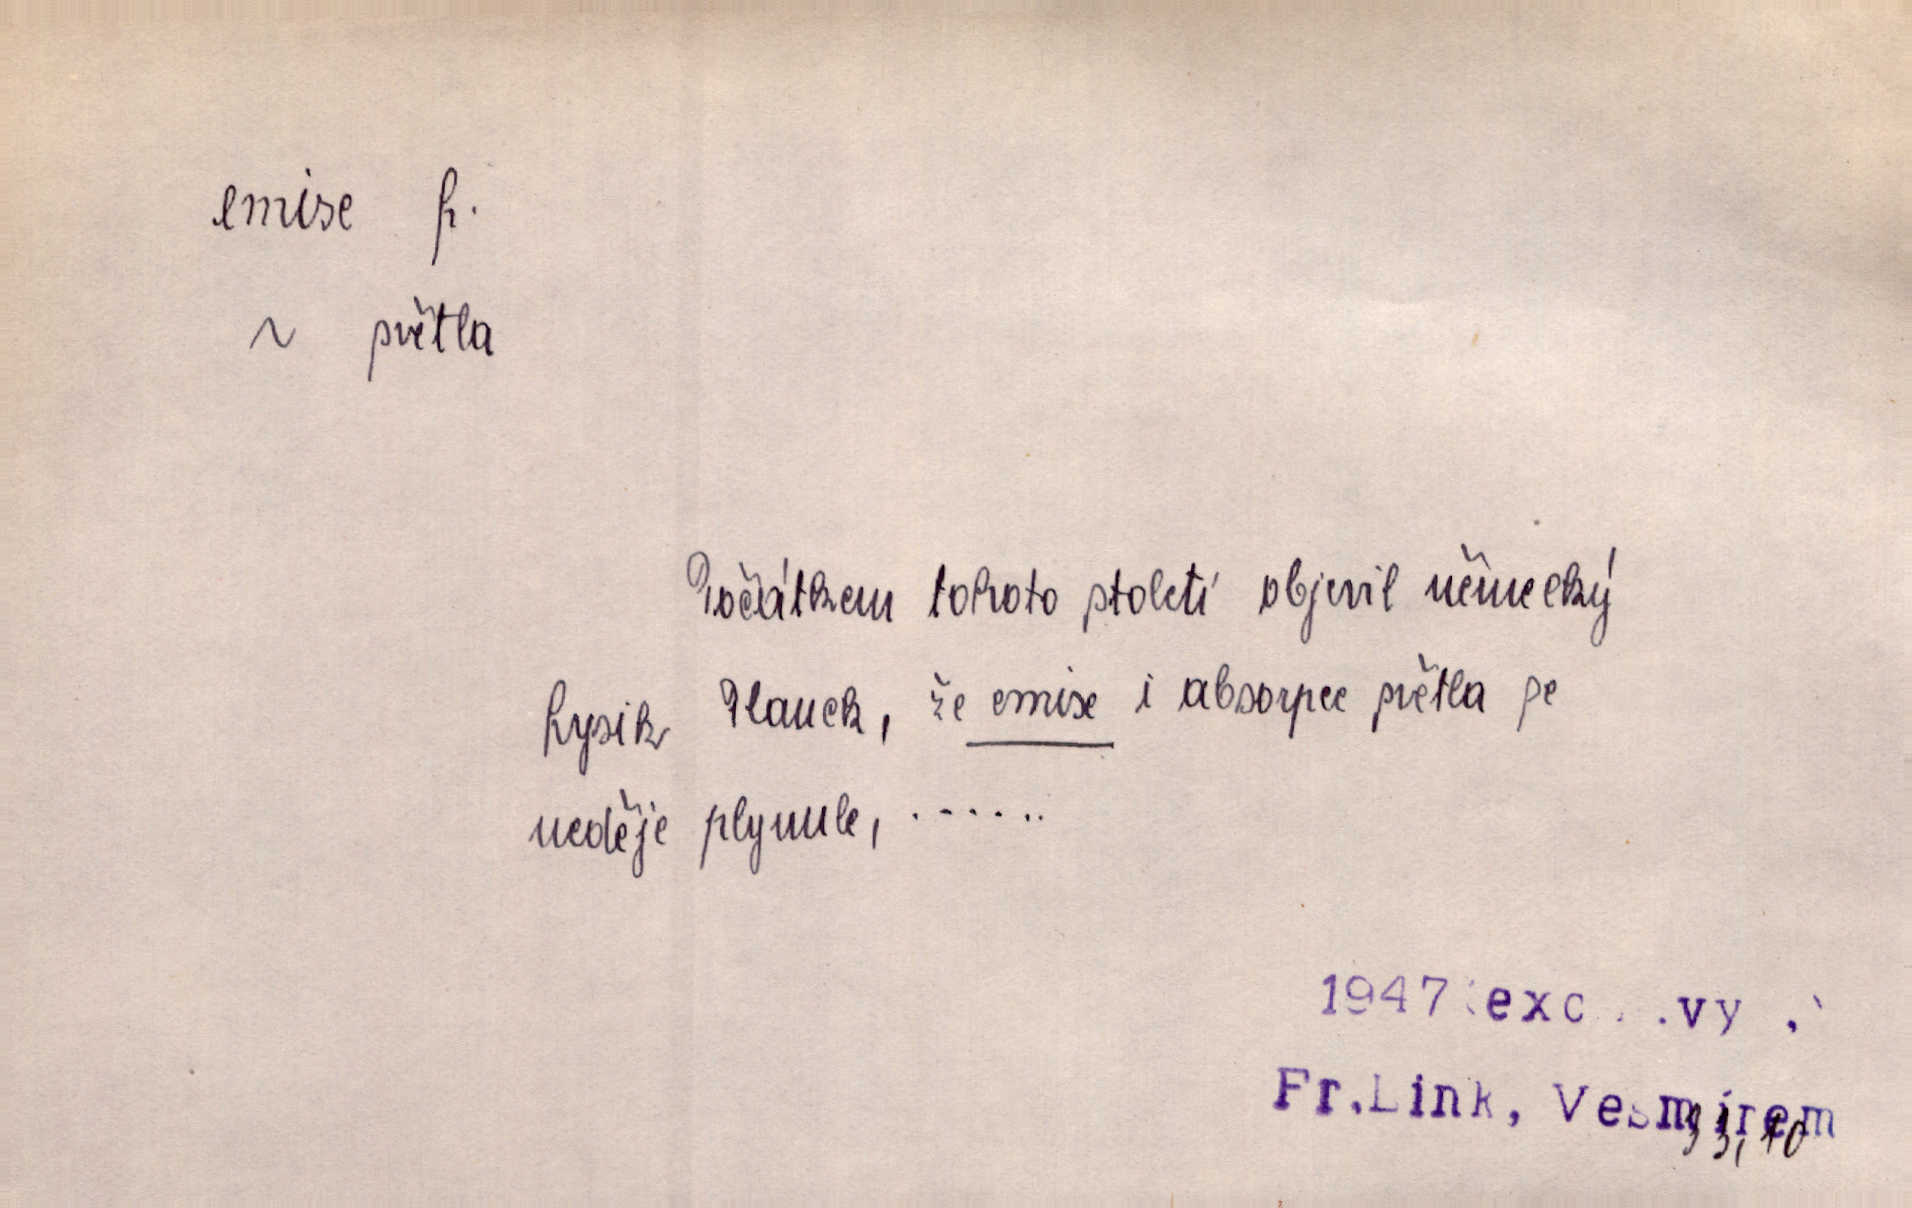 emise f.
~ světla
Počátkem tohoto století objevil německý
fysik Planck, že emise i absorpce světla se
neděje plynule, ......
1947 exc. vy
Fr.Link, Vesmírem
33,10